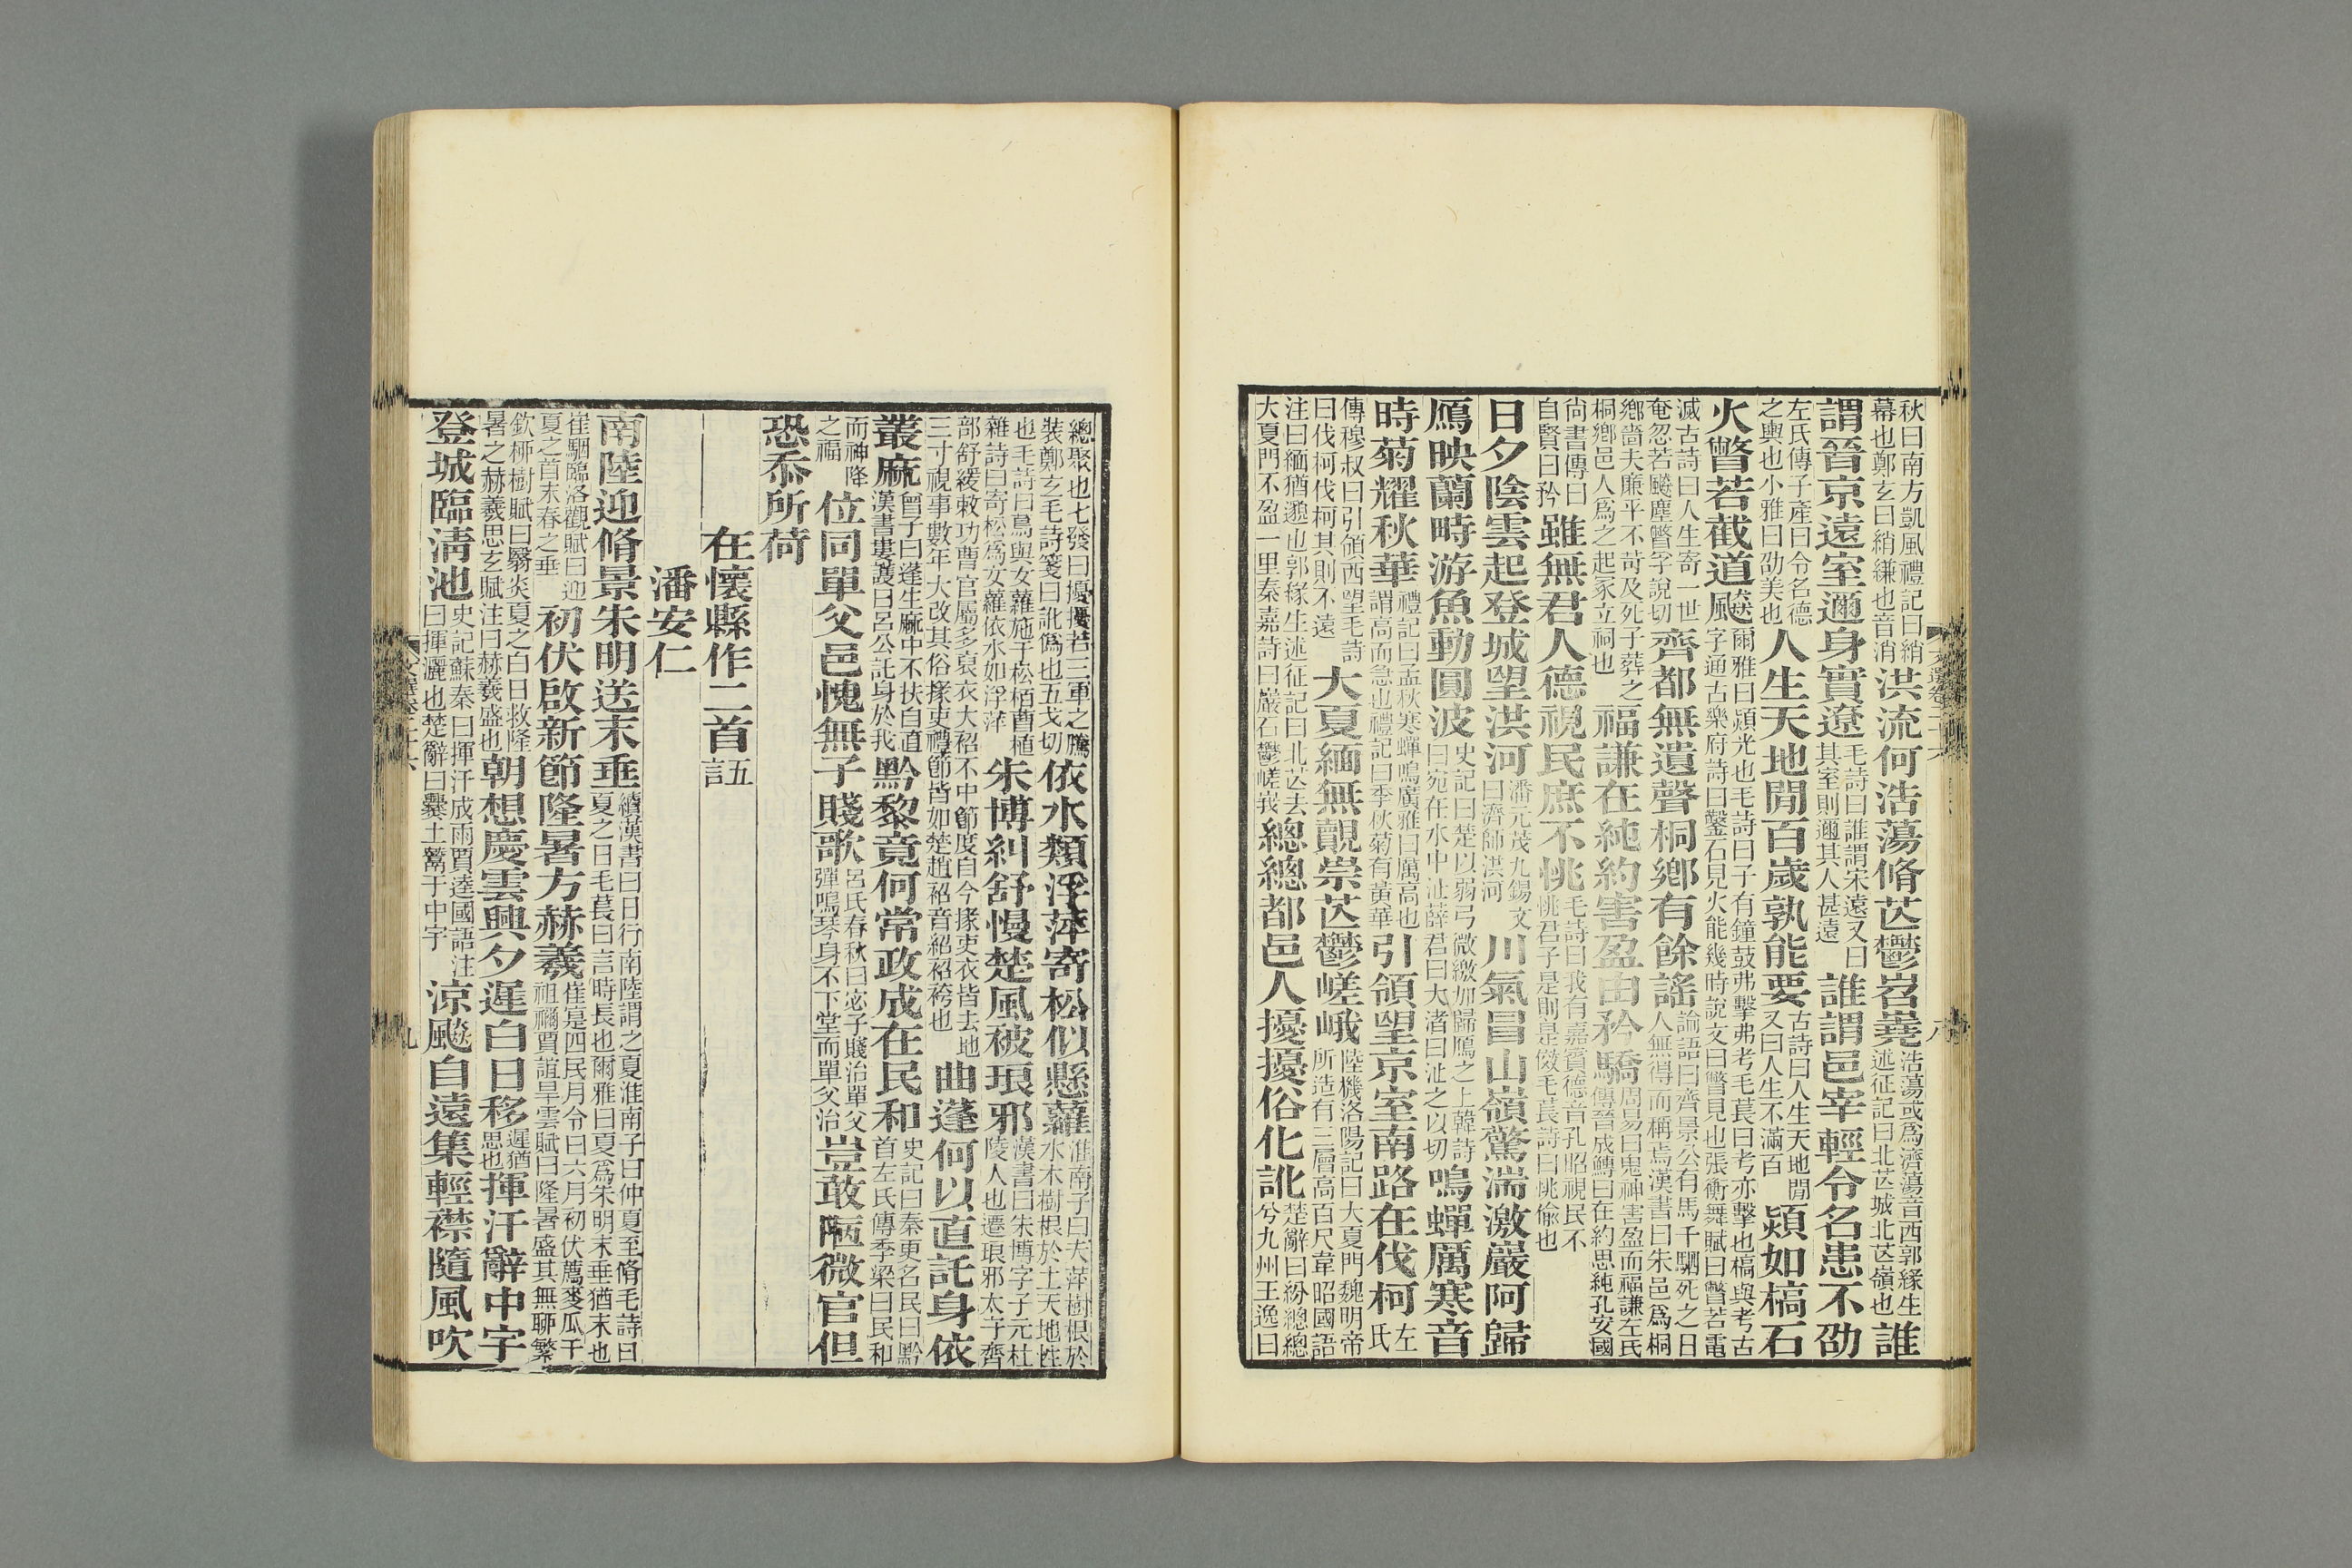 秋曰南方凱風禮記曰綃
幕也鄭玄曰綃縑也音消
洪流何浩蕩脩芒鬱岧嶤
浩蕩或爲濟蕩音西郭緣生
述征記曰北芒城北芒嶺也
誰
謂晉京遠室邇身實遼
毛詩曰誰謂宋遠又曰
其室則邇其人甚遠
誰謂邑宰輕令名患不劭
左氏傳子產曰令名德
之輿也小雅曰劭美也
人生天地閒百歲孰能要
古詩曰人生天地閒
又曰人生不滿百
熲如槁石
火瞥若截道飈
爾雅曰熲光也毛詩曰子有鐘鼓弗擊弗考毛萇曰考亦擊也槁與考古
字通古樂府詩曰鑿石見火能幾時說文曰瞥見也張衡舞賦曰瞥若電
滅古詩曰人生寄一世
奄忽若飈塵瞥孚說切
齊都無遺聲桐鄉有餘謠
論語曰齊景公有馬千駟死之日
人無得而稱焉漢書曰朱邑爲桐
鄉嗇夫廉平不苛及死子葬之
桐鄉邑人爲之起冢立祠也
福謙在純約害盈由矜驕
周易曰鬼神害盈而福謙左氏
傳晉成鱄曰在約思純孔安國
尚書傳曰
自賢曰矜
雖無君人德視民庶不恌
毛詩曰我有嘉賓德音孔昭視民不
恌君子是則是傚毛萇詩曰恌偷也
日夕陰雲起登城望洪河
潘元茂九錫文
曰濟師洪河
川氣冒山嶺驚湍激巖阿歸
鴈映蘭畤游魚動圓波
史記曰楚以弱弓微繳加歸鴈之上韓詩
曰宛在水中沚薛君曰大渚曰沚之以切
鳴蟬厲寒音
時菊耀秋華
禮記曰孟秋寒蟬鳴廣雅曰厲高也
謂高而急也禮記曰季秋菊有黃華
引領望京室南路在伐柯
左
氏
傳穆叔曰引領西望毛詩
曰伐柯伐柯其則不遠
大夏緬無覿崇芒鬱嵯峨
陸機洛陽記曰大夏門魏明帝
所造有三層高百尺韋昭國語
注曰緬猶邈也郭緣生述征記曰北芒去
大夏門不盈一里秦嘉詩曰巖石鬱嵯峩
總總都邑人擾擾俗化訛
楚辭曰紛總總
兮九州王逸曰
文選卷二十六
八
總聚也七發曰擾擾若三軍之騰
裝鄭玄毛詩箋曰訛僞也五戈切
依水類浮萍寄松似懸蘿
淮南子曰夫萍樹根於
水木樹根於土天地性
也毛詩曰蔦與女蘿施于松栢曹植
雜詩曰寄松爲女蘿依水如浮萍
朱博糾舒慢楚風被琅邪
漢書曰朱博字子元杜
陵人也遷琅邪太守齊
部舒緩敕功曹官屬多裒衣大袑不中節度自今掾吏衣皆去地
三寸視事數年大改其俗掾吏禮節皆如楚趙袑音紹袑袴也
曲蓬何以直託身依
叢麻
曾子曰蓬生麻中不扶自直
漢書婁護曰呂公託身於我
黔黎竟何常政成在民和
史記曰秦更名民曰黔
首左氏傳季梁曰民和
而神降
之福
位同單父邑愧無子賤歌
呂氏春秋曰宓子賤治單父
彈鳴琴身不下堂而單父治
豈敢陋微官但
恐忝所荷
在懷縣作二首
五
言
潘安仁
南陸迎脩景朱明送末垂
續漢書曰日行南陸謂之夏淮南子曰仲夏至脩毛詩曰
夏之日毛萇曰言時長也爾雅曰夏爲朱明末垂猶末也
崔駰臨洛觀賦曰迎
夏之首末春之垂
初伏啟新節隆暑方赫羲
崔寔四民月令曰六月初伏薦麥瓜于
祖禰賈誼旱雲賦曰隆暑盛其無聊繁
欽柳樹賦曰翳炎夏之白日救隆
暑之赫羲思玄賦注曰赫羲盛也
朝想慶雲興夕遲白日移
遲猶
思也
揮汗辭中宇
登城臨清池
史記蘇秦曰揮汗成雨賈逵國語注
曰揮灑也楚辭曰爨土鬻于中宇
涼飈自遠集輕襟隨風吹
文選卷二十六
九